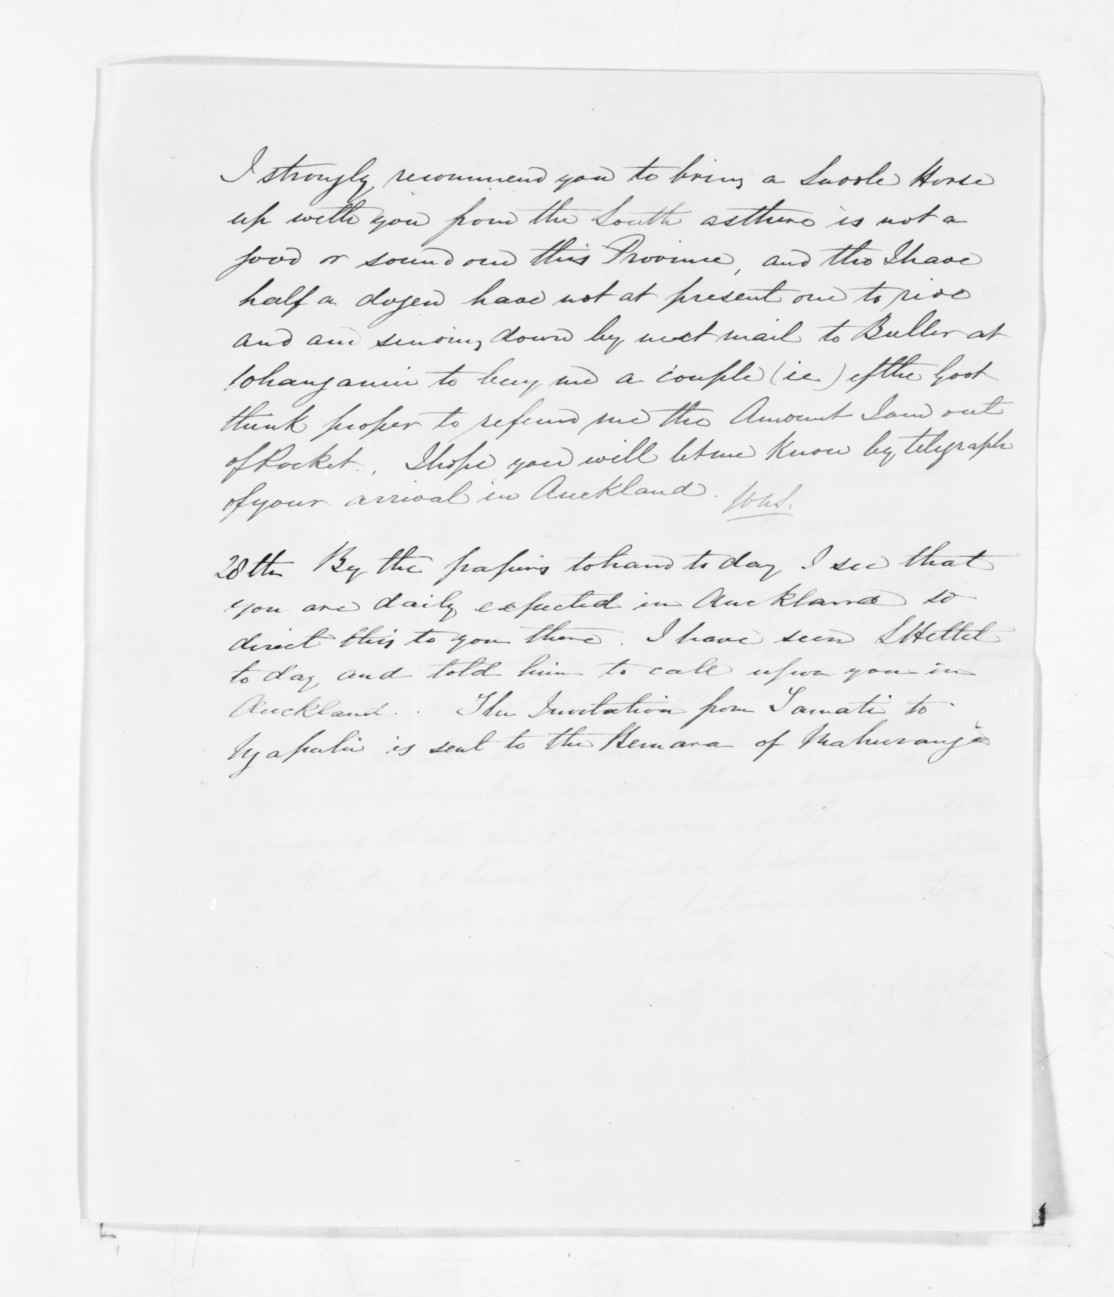 I strongly recommend you to bring a Saddle Horse
up with you from the South as there is not a
good or sound one this Province, and tho I have
half a dozen have not at present one to ride
and am sending down by next mail to Buller at
Whanganui to buy me a couple (ie) if the Govt
think proper to refund me the Amount I am out
of Pocket. I hope you will let me know by telegraph
of your arrival in Auckland.
28th By the papers to hand to day I see that
you are daily expected in Auckland so
direct this to you there. I have seen SHettet
to day and told him to call upon you in
Auckland. The Invitation from Tamati to
Ngapuhi is sent to the Hemara of Mahurangi